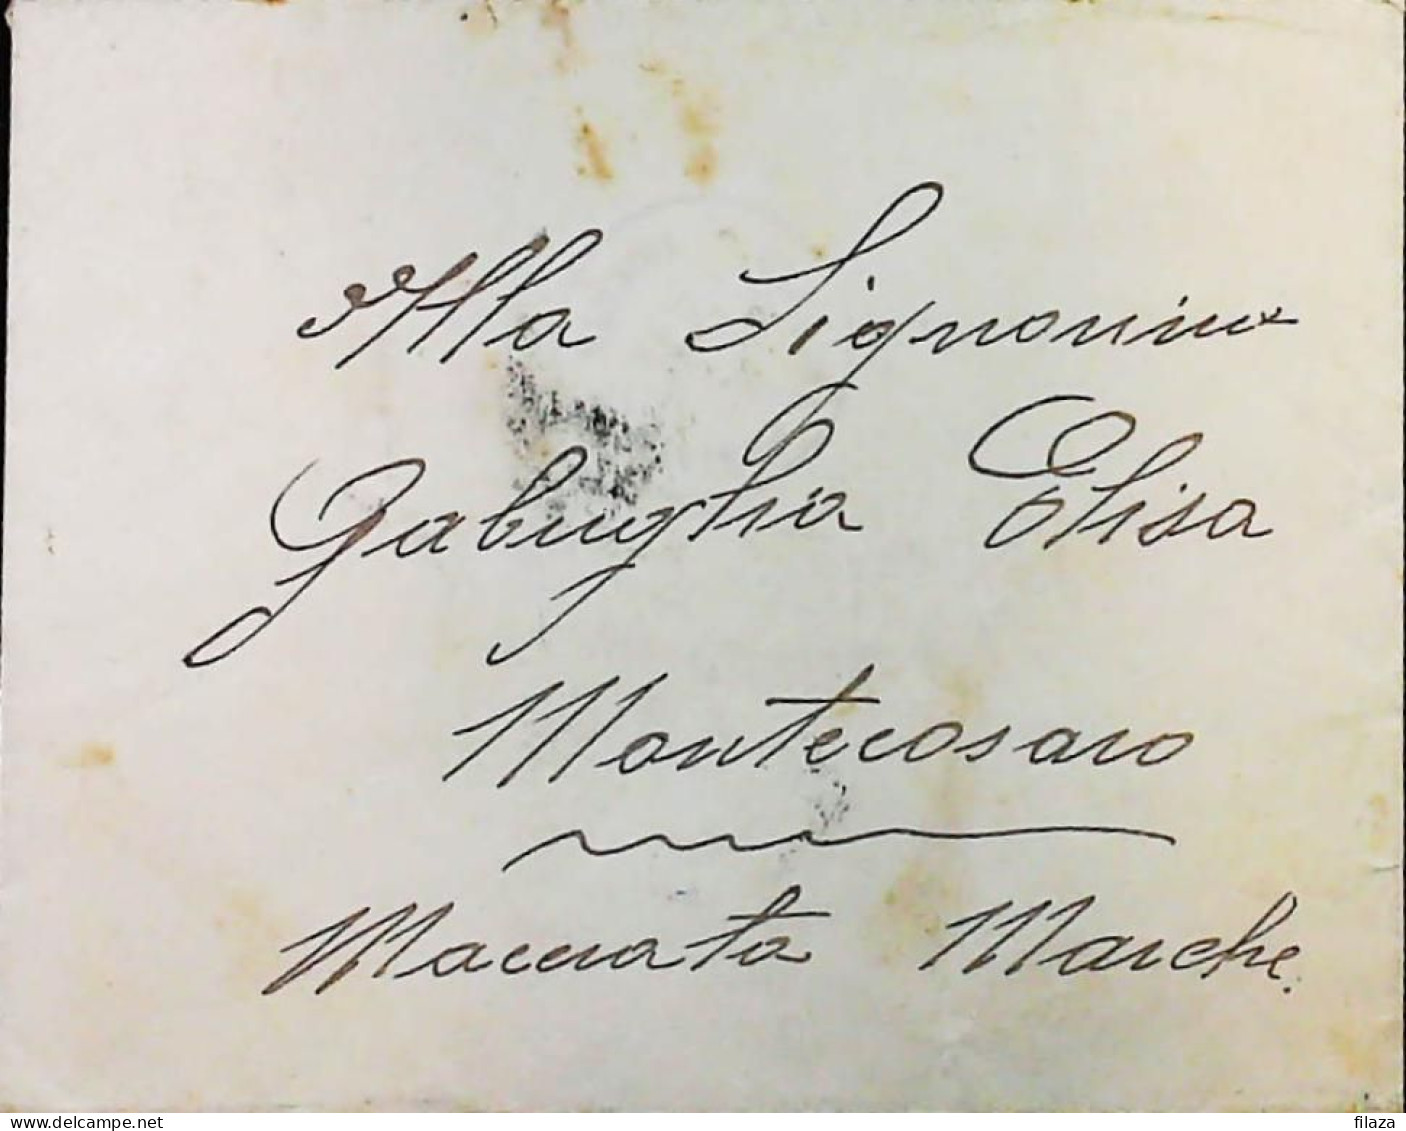 Alla Signorina
Gabuglia Elisa
Montecosaro
Macerata Marche.
www.delcampe.net
filaza